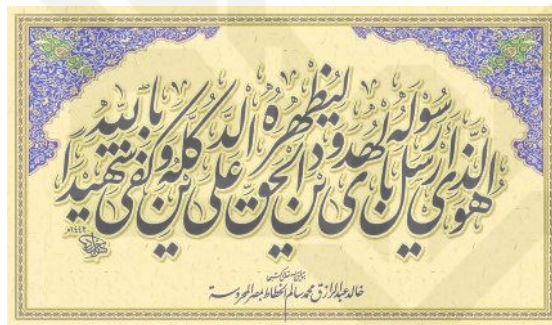 هو الذي أرسل رسوله بالهدى ودين الحق ليظهره على الدين كله وكفى بالله شهيدا
١٤٤٢هـ
خالد عبدالرازق محمد سالم الخطاط بمصر المحروسة